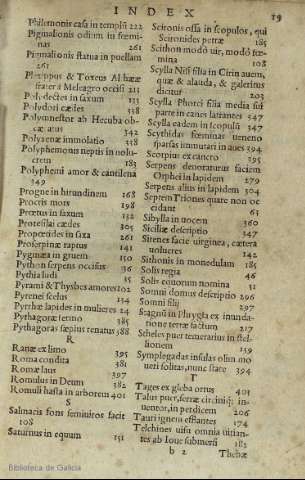 INDEX
19
Philemonis casa in templū 222
Pigmalionis odium in fœmi-
nas 261
Pigmalionis statua in puellam
261
Plexippus & Toxeus Althææ
fratres à Meleagro occisi 213
Polydectes in saxum 133
Polydori cædes 338
Polymnestor ab Hecuba ob-
cæcatus 342
Polyxenæ immolatio 338
Polyphemonus neptis in nolu-
crem 183
Polyphemi amor & cantilena
349
Progne in hirundinem 168
Procris mors 198
Prœtus in saxum 132
Protesilai cædes 305
Propœtides in saxa 261
Proserpinæ raptus 141
Pygmæa in gruem 150
Python serpens occisus 36
Pythia ludi 35
Pyrami & Thysbes amores 102
Pyrenei scelus 134
Pyrrhæ lapides in mulieres 24
Pythagoræ sermo 385
Pythagoras sæpius renatus 388
R
Ranæ ex limo 395
Roma condita 381
Romæ laus 397
Romulus in Deum 382
Romuli hasta in arborem 401
S
Salmacis fons semiuiros facit
108
Saturnus in equum 151
Scironis ossa in scopulos, qui
Scironides petræ 185
Scithon modò uir, modò fœ-
mina 108
Scylla Nisi filia in Cirin auem,
quæ & alauda, & galerita
dicitur 203
Scylla Phorci filia media sui
parte in canes latrantes 347
Scylla eadem in scopulū 347
Scythidæ fœminæ ueneno
sparsas immutari in aues 394
Scorpius ex cancro 395
Serpens deuoraturus faciem
Orphei in lapidem 279
Serpens alius in lapidem 304
Septem Triones quare non oc
cidant 63
Sibylla in uocem 360
Siciliæ descriptio 347
Sirenes facie uirginea, cætera
uolucres 142
Sithonis in monedulam 185
Solis regia 46
Solis equorum nomina 51
Somni domus descriptio 296
Somni filij 297
Stagnū in Phrygia ex inunda-
tione terræ factum 217
Stheles puer temerarius in stel-
lionem 139
Symplegadas insulas olim mo
ueri solitas, nunc stare 394
T
Tages ex gleba ortus 401
Talus puer, serræ circiniq; in-
uentor, in perdicem 206
Tauri ignem efflantes 174
Telchines uisu omnia uitian-
tes ab Ioue submersi 183
b 2 Thebæ
Biblioteca de Galicia